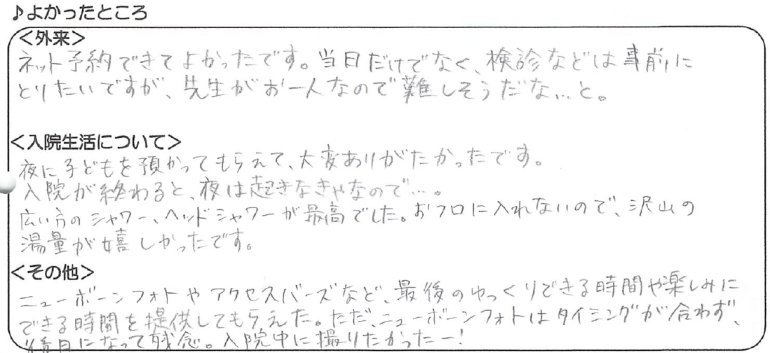 ♪よかったところ
<外来>
ネット予約できてよかったです。当日だけでなく、検診などは事前に
とりたいですが、先生がお一人なので難しそうだな…と。
<入院生活について>
夜に子どもを預かってもらえて、大変ありがたかったです。
入院が終わると、夜は起きなきゃなので…。
広い方のシャワー、ヘッドシャワーが最高でした。おフロに入れないので、沢山の
湯量が嬉しかったです。
<その他>
ニューボーンフォトやアクセスバーズなど、最後のゆっくりできる時間や楽しみに
できる時間を提供してもらえた。ただ、ニューボーンフォトはタイミングが合わず、
後日になって残念。入院中に撮りたかったー!